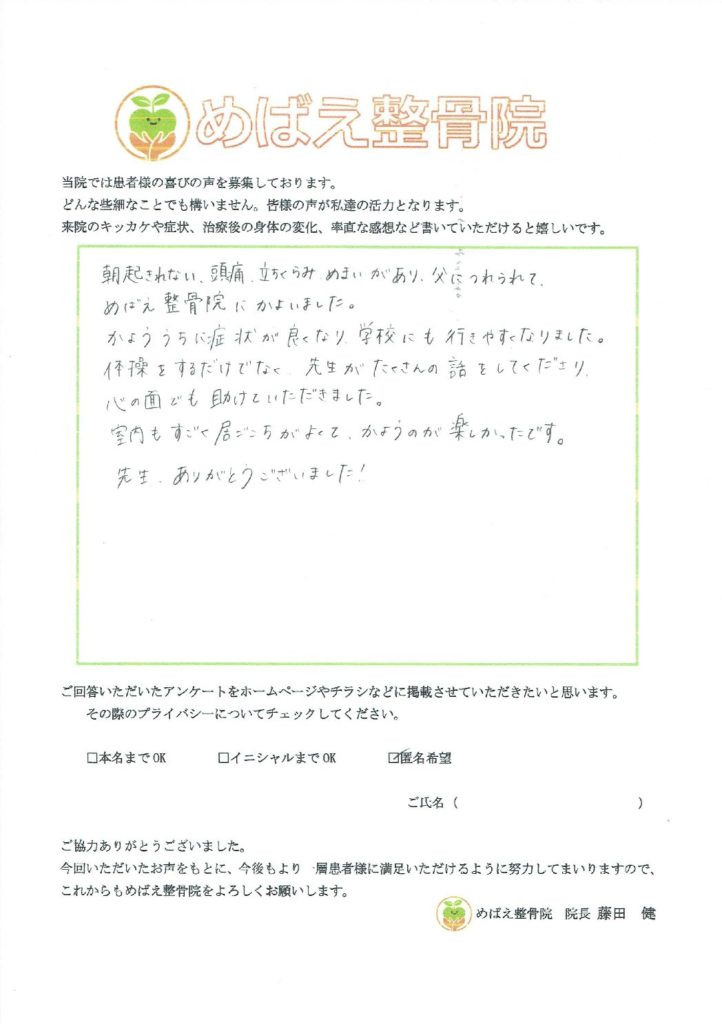 めばえ整骨院
当院では患者様の喜びの声を募集しております。
どんな些細なことでも構いません。皆様の声が私達の活力となります。
来院のキッカケや症状、治療後の身体の変化、率直な感想など書いていただけると嬉しいです。
朝起きれない、頭痛、立ちくらみ、めまいがあり、父につれられて、
めばえ整骨院にかよいました。
かよううちに症状が良くなり、学校にも行きやすくなりました。
体操をするだけでなく、先生がたくさんの話をしてくださり、
心の面でも助けていただきました。
室内もすごく居ごこちがよくて、かようのが楽しかったです。
先生、ありがとうございました!
ご回答いただいたアンケートをホームページやチラシなどに掲載させていただきたいと思います。
その際のプライバシーについてチェックしてください。
□本名までOK □イニシャルまでOK ☑匿名希望
ご氏名( )
ご協力ありがとうございました。
今回いただいたお声をもとに、今後もより一層患者様に満足いただけるように努力してまいりますので、
これからもめばえ整骨院をよろしくお願いします。
めばえ整骨院 院長 藤田 健